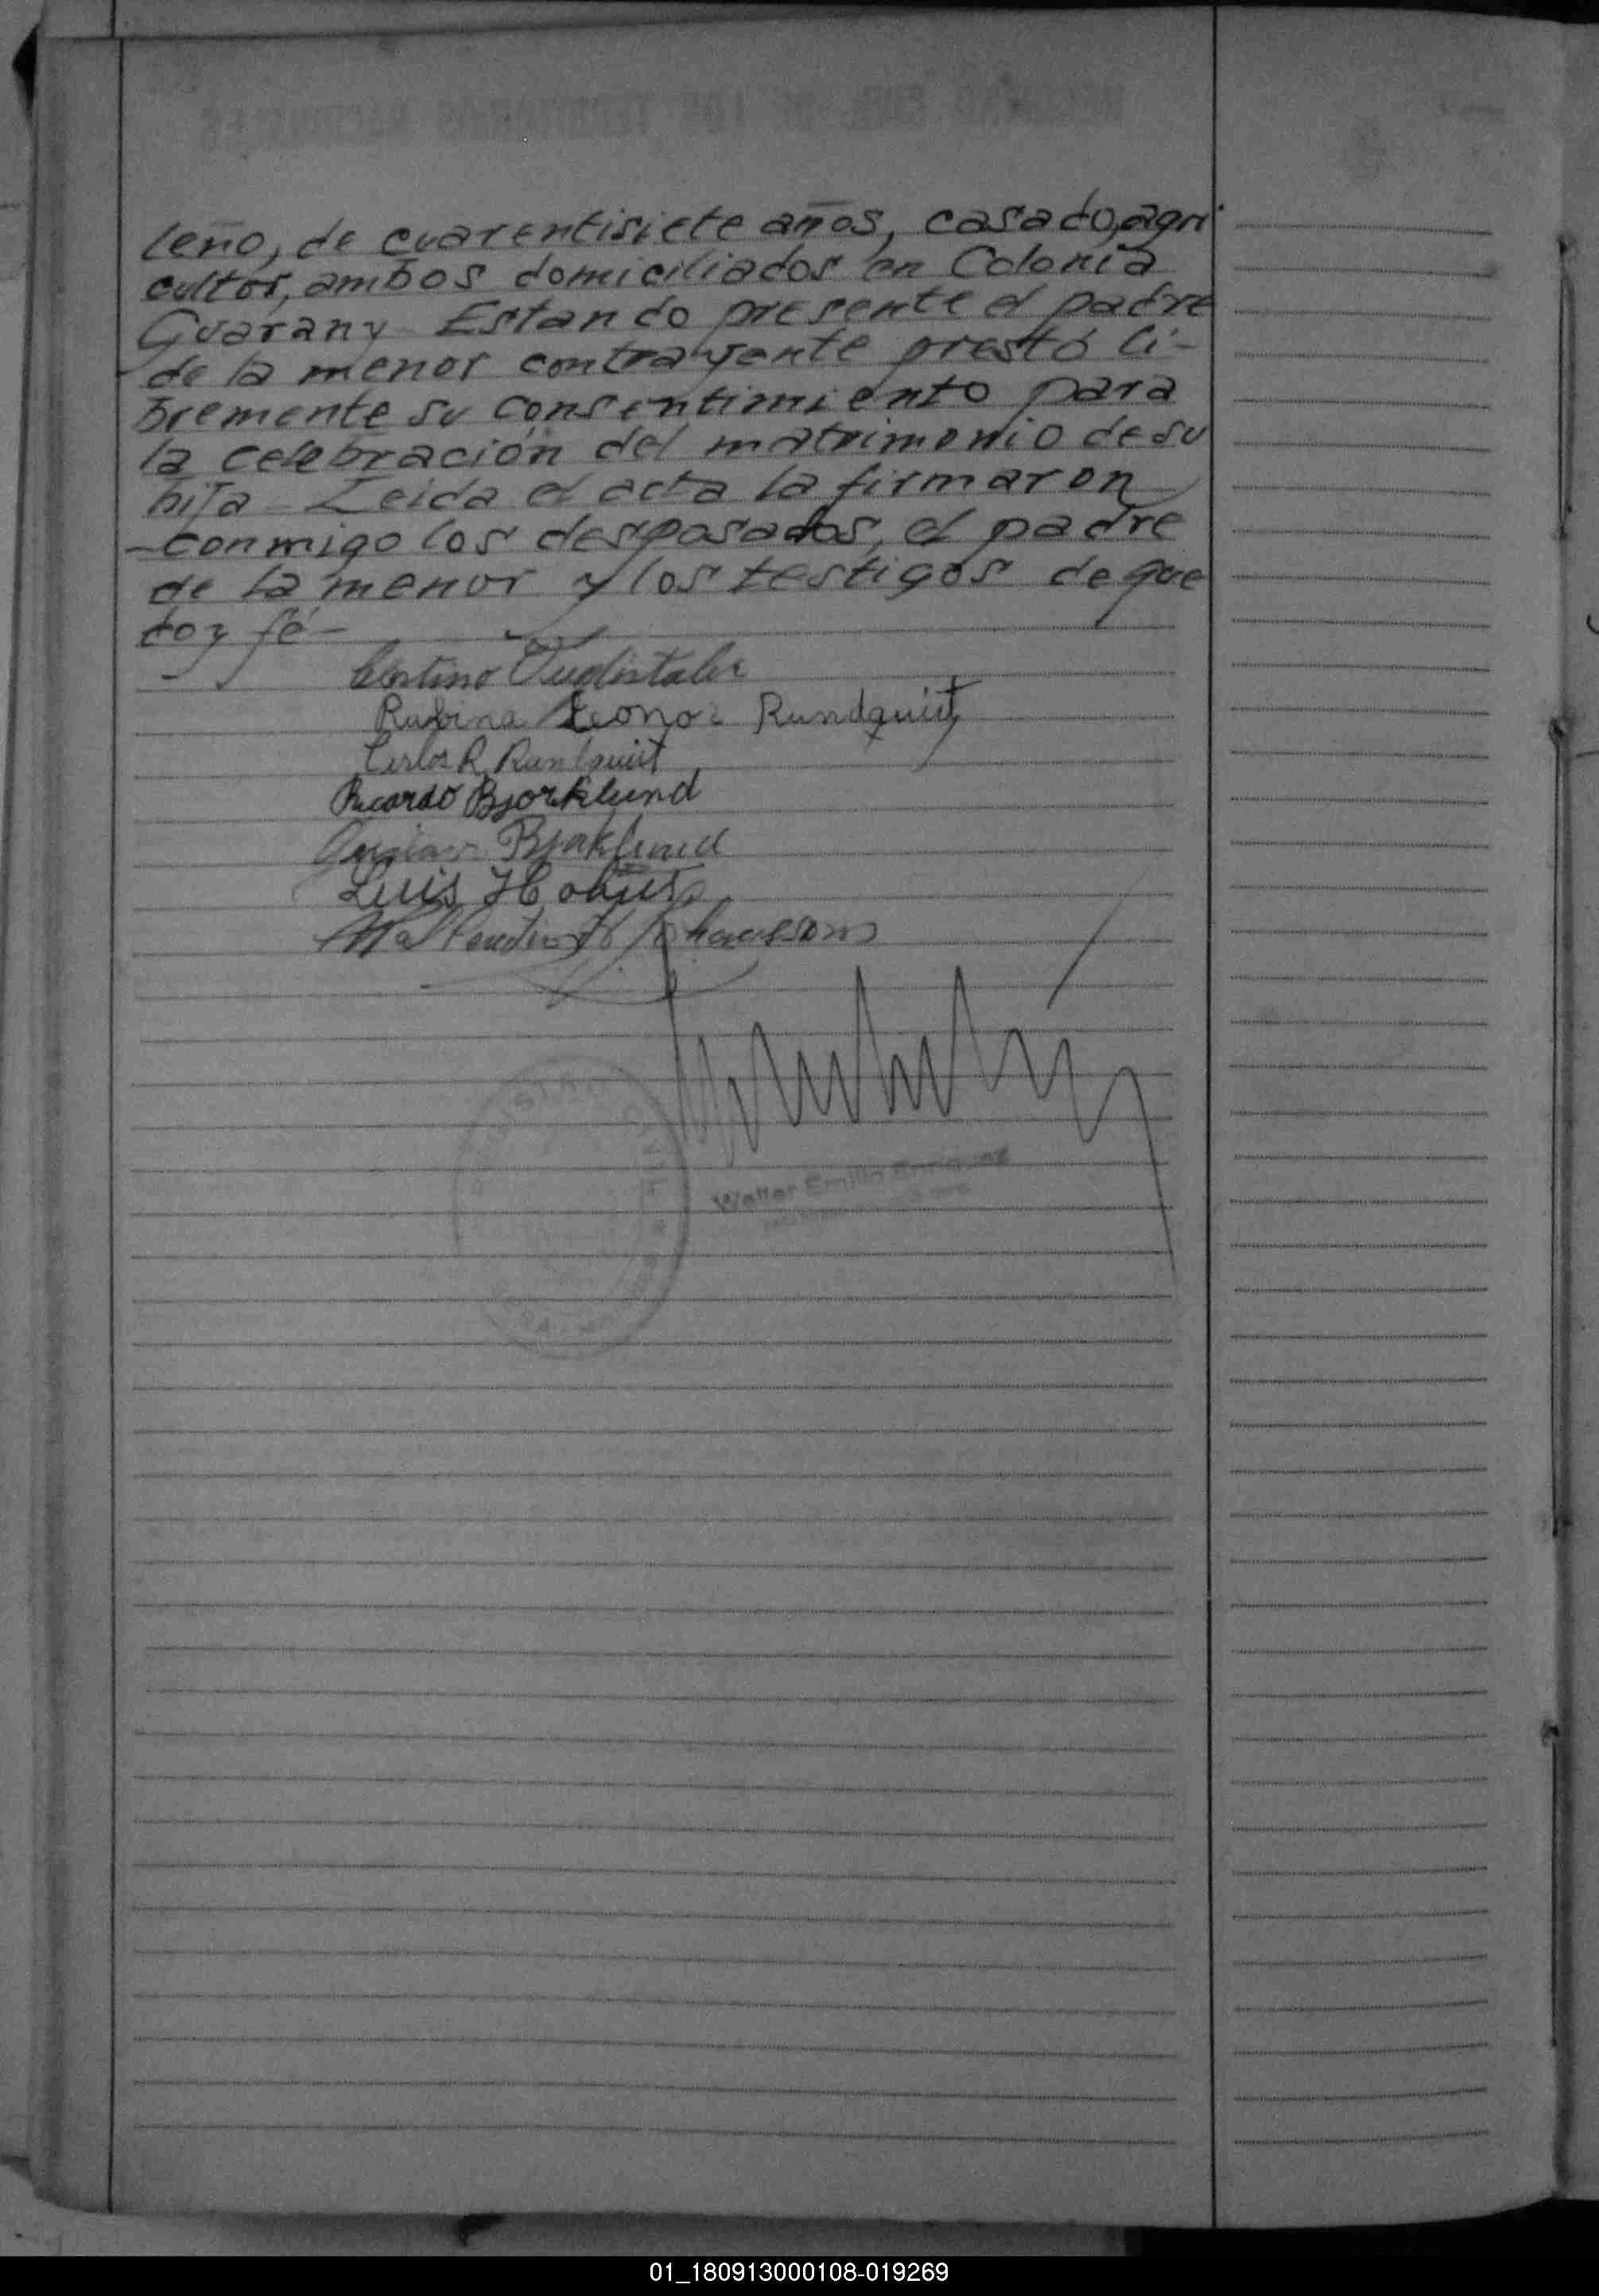 leño, de cuarentisiete años, casado, agri
cultor, ambos domiciliados en Colonia
Guarany - Estando presente el padre
de la menor contrayente prestó li-
bremente su consentimiento para
la celebración del matrimonio de su
hija - Leida el acta la firmaron
conmigo los desposados, el padre
de la menor y los testigos de que
doy fé -
Rubina Leonor Rundquist
Carlos R. Rundquist
Ricardo Bjorklund
Bjorklund
Luis
Walter Emilio Enriquez
01_180913000108-019269